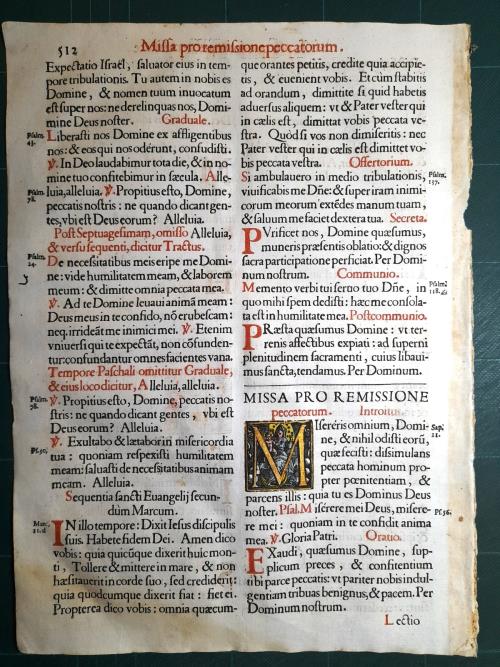 512
Missa pro remissione peccatorum.
Expectatio Israël, saluator eius in tem-
pore tribulationis. Tu autem in nobis es
Domine, & nomen tuum inuocatum
est super nos: ne derelinquas nos, Domi-
mine Deus noster. Graduale.
Psalm. 43.
Liberasti nos Domine ex affligentibus
nos: & eos qui nos oderūt, confudisti.
℣. In Deo laudabimur tota die, & in no-
mine tuo confitebimur in sæcula. Alle-
luia, alleluia. ℣. Propitius esto, Domine,
Psalm. 78.
peccatis nostris: ne quando dicant gen-
tes, vbi est Deus eorum? Alleluia.
Post Septuagesimam, omisso Alleluia,
& versu sequenti, dicitur Tractus.
Psalm. 24.
De necessitatibus meis eripe me Domi-
ne: vide humilitatem meam, & laborem
meum: & dimitte omnia peccata mea.
℣. Ad te Domine leuaui animā meam:
Deus meus in te confido, nō erubescam:
neq; irrideāt me inimici mei. ℣. Etenim
vniuersi qui te expectāt, non cōfunden-
tur: confundantur omnes facientes vana.
Tempore Paschali omittitur Graduale,
& eius loco dicitur, Alleluia, alleluia.
Psalm. 78.
℣. Propitius esto, Domine, peccatis no-
stris: ne quando dicant gentes, vbi est
Deus eorum? Alleluia.
Ps. 30.
℣. Exultabo & lætabor in misericordia
tua: quoniam respexisti humilitatem
meam: saluasti de necessitatibus animam
meam. Alleluia.
Sequentia sancti Euangelij secun-
dùm Marcum.
Marc.
IN illo tempore: Dixit Iesus discipulis
suis. Habete fidem Dei. Amen dico
vobis: quia quicūque dixerit huic mon-
ti, Tollere & mittere in mare, & non
hæsitauerit in corde suo, sed crediderit:
quia quodcumque dixerit fiat: fiet ei.
Propterea dico vobis: omnia quæcum-
que orantes petitis, credite quia accipie-
tis, & euenient vobis. Et cùm stabitis
ad orandum, dimittite si quid habetis
aduersus aliquem: vt & Pater vester qui
in cælis est, dimittat vobis peccata ve-
stra. Quòd si vos non dimiseritis: nec
Pater vester qui in cælis est dimittet vo-
bis peccata vestra. Offertorium.
Psalm. 137.
Si ambulauero in medio tribulationis,
viuificabis me Dñe: & super iram inimi-
corum meorum extēdes manum tuam,
& saluum me faciet dextera tua. Secreta.
PVrificet nos, Domine quæsumus,
muneris præsentis oblatio: & dignos
sacra participatione perficiat. Per Domi-
num nostrum. Communio.
Psalm.
Memento verbi tui seruo tuo Dñe, in
quo mihi spem dedisti: hæc me consola-
ta est in humilitate mea. Postcommunio.
PRæsta quæsumus Domine: vt ter-
renis affectibus expiati: ad superni
plenitudinem sacramenti, cuius libaui-
mus sancta, tendamus. Per Dominum.
MISSA PRO REMISSIONE
peccatorum. Introitus.
Sap. 11.
MIsereris omnium, Domi-
ne, & nihil odisti eorū,
quæ fecisti: dissimulans
peccata hominum pro-
pter pœnitentiam, &
parcens illis: quia tu es Dominus Deus
noster. Psal. Miserére mei Deus, misere-
Ps. 56.
re mei: quoniam in te confidit anima
mea. ℣. Gloria Patri. Oratio.
EXaudi, quæsumus Domine, sup-
plicum preces, & confitentium
tibi parce peccatis: vt pariter nobis indul-
gentiam tribuas benignus, & pacem. Per
Dominum nostrum.
Lectio